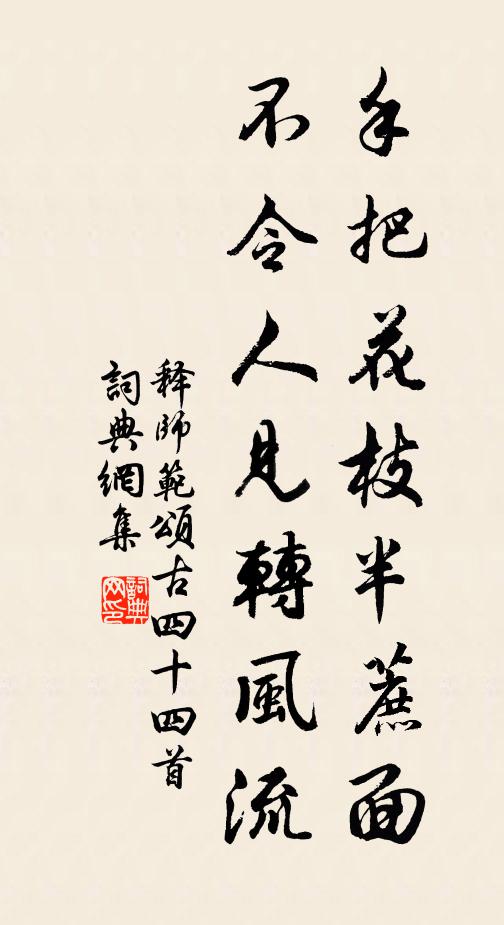 手把花枝半蔗面
不令人見轉風流
释師範頌古四十四首
詞典網集
詞典網印